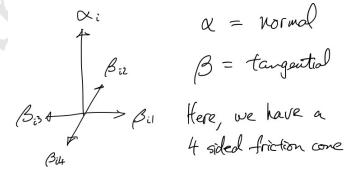 αi
βi2
βi3
βi1
βi4
α = normal
β = tangential
Here, we have a
4 sided friction cone